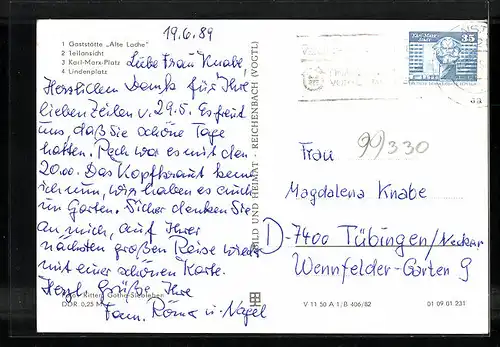 19.6.89
1 Gaststätte „Alte Lache"
2 Teilansicht
3 Karl-Marx-Platz
4 Lindenplatz
Liebe Frau Knabe
Herzlichen Dank für Ihre
lieben Zeilen v. 29.5. Es freut
uns, daß Sie schöne Tage
hatten. Pech war es mit den
20.00. Das Kopfkraut kenne
ich nun, wir haben es auch
im Garten. Sicher denken Sie
an mich, auf Ihrer
nächsten großen Reise wieder
mit einer schönen Karte.
Herzl. Grüße, Ihre
Fam. Römer u. Nagel
Gotha-Siebleben
DDR 0,25 M
BILD UND HEIMAT · REICHENBACH (VOGTL)
35
99/330
Frau
Magdalena Knabe
D-7400 Tübingen/Neckar
Wennfelder-Garten 9
V 11 50 A 1/B 406/82
01 09 01 231